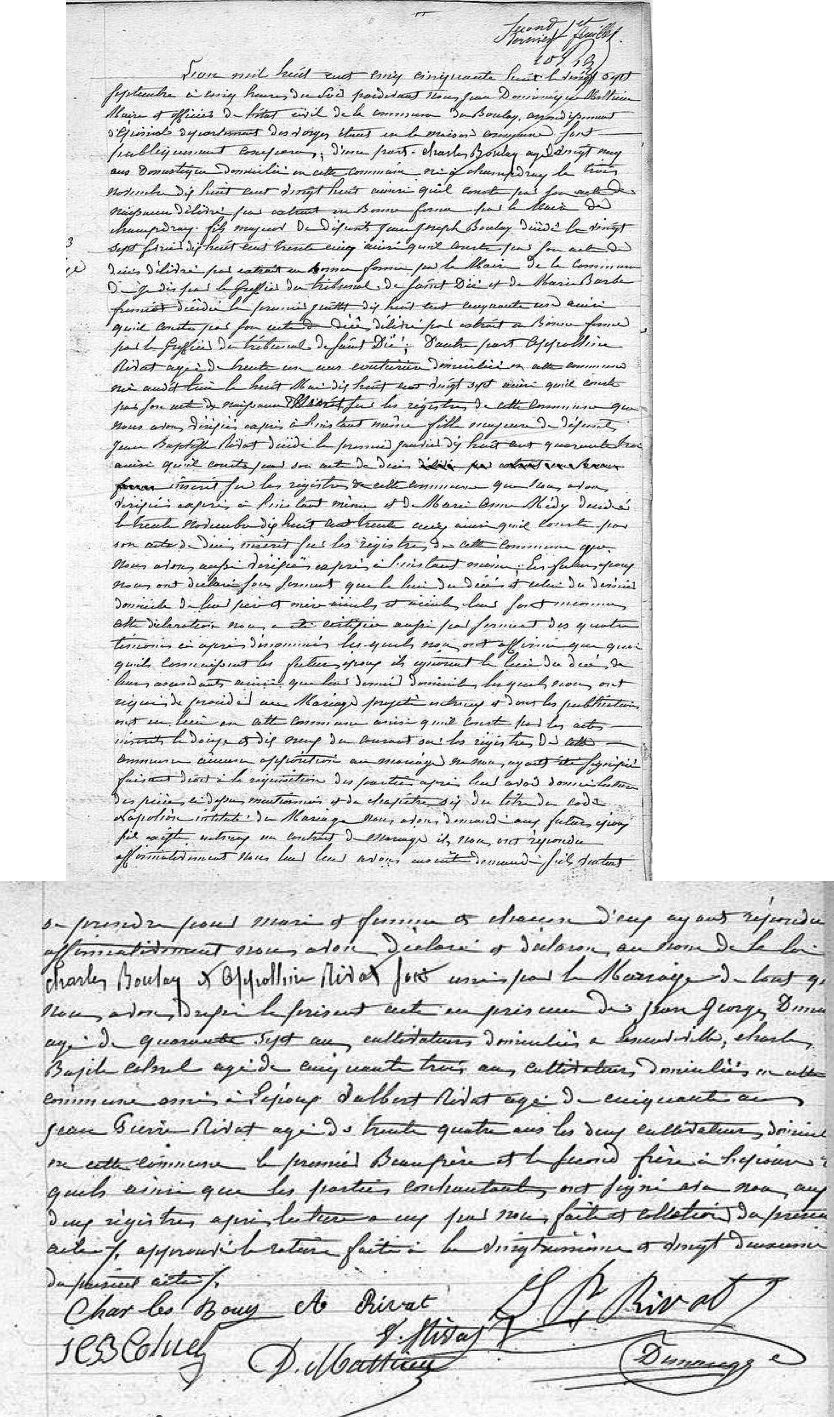 Second
dernier feuillet
L'an mil huit cent cinquante huit le vingt sept
septembre à cinq heures du soir pardevant nous Jean Dominique Mathieu
Maire et officier de l'état civil de la commune du Boulay, arrondissement
d'Epinal département des Vosges étant en la maison commune sont
publiquement comparus; d'une part Charles Boulay agé de vingt neuf
ans Domestique domicilié en cette commune né à champdray le trois
novembre dix huit cent vingt huit ainsi qu'il conste par son acte de
naissance délivré par extrait en Bonne forme par le Maire de
champdray fils majeur de défunt Jean Joseph Boulay décédé le vingt
sept février dix huit cent trente cinq ainsi qu'il conste par son acte de
décès délivré par extrait en bonne forme par le Maire de la commune
de par le Greffier du tribunal de saint Dié et de Marie Barbe
décédée le premier juillet dix huit cent cinquante un ainsi
qu'il conste par son acte de décès délivré par extrait en Bonne forme
par le Greffier du tribunal de saint Dié; D'autre part Appolline
Rivat agée de trente un ans couturière domiciliée en cette commune
née audit lieu le huit Mai dix huit cent vingt sept ainsi qu'il conste
par son acte de naissance sur les régistres de cette commune que
nous avons dirigés exprès à l'instant même fille majeure de défunt
Jean Baptiste Rivat décédé le premier janvier dix huit cent quarante trois
ainsi qu'il conste par son acte de décès délivré par extrait en bonne
forme inscrit sur les régistres de cette commune que nous avons
dirigés exprès à l'instant même et de Marie Anne Médy décédée
le trente Novembre dix huit cent trente cinq ainsi qu'il conste par
son acte de décès inscrit sur les régistres de cette commune que
nous avons aussi dirigés exprès à l'instant même. Les futurs époux
nous ont déclaré sous serment que le lieu du décès et celui du dernier
domicile de leur père et mère aïeuls et aïeules leur sont inconnus
cette déclaration nous a été certifiée aussi par serment des quatre
témoins ci après dénommés lesquels nous ont affirmé que quoi
qu'ils connaissent les futurs époux ils ignorent le lieu du décès de
leurs ascendants ainsi que leur dernier domicile lesquels nous ont
requis de procéder au Mariage projeté entr'eux et dont les publications
ont eu lieu en cette commune ainsi qu'il conste par les actes
inscrits le douze et dix neuf du courant sur les régistres de cette
commune aucune opposition au mariage ne nous ayant été signifiée
faisant droit à la réquisition des parties après leur avoir donné lecture
des pièces ci dessus mentionnées et du chapitre six du titre du code
Napoléon intitulé du Mariage nous avons demandé aux futurs époux
s'il existe entr'eux un contrat de mariage ils nous ont répondu
affirmativement nous leur leur avons ensuite demandé s'ils veulent
se prendre pour mari et femme et chacun d'eux ayant répondu
affirmativement nous avons déclaré et déclarons au nom de la loi
Charles Boulay et Appolline Rivat sont unis par le Mariage de tout quoi
nous avons dressé le présent acte en présence de Jean George
agé de quarante sept ans cultivateurs domiciliés à Laneuveville, charles
Basile Colnel agé de cinquante trois ans cultivateurs domiciliés en cette
commune amis à l'époux d'albert Rivat agé de cinquante ans
Jean Pierre Rivat agé de trente quatre ans les deux cultivateurs domiciliés
en cette commune le premier Beaufrère et le second frère à l'épouse
quels ainsi que les parties contractantes ont signé avec nous aux
deux régistres après lecture à eux par nous faite et collation du présent
acte approuvé la rature faite à la vingtroisième et vingt deuxième
du présent acte
Charles Bouy A Rivat J P Rivat
D. Rivat
J C B Colnel D. Mathieu